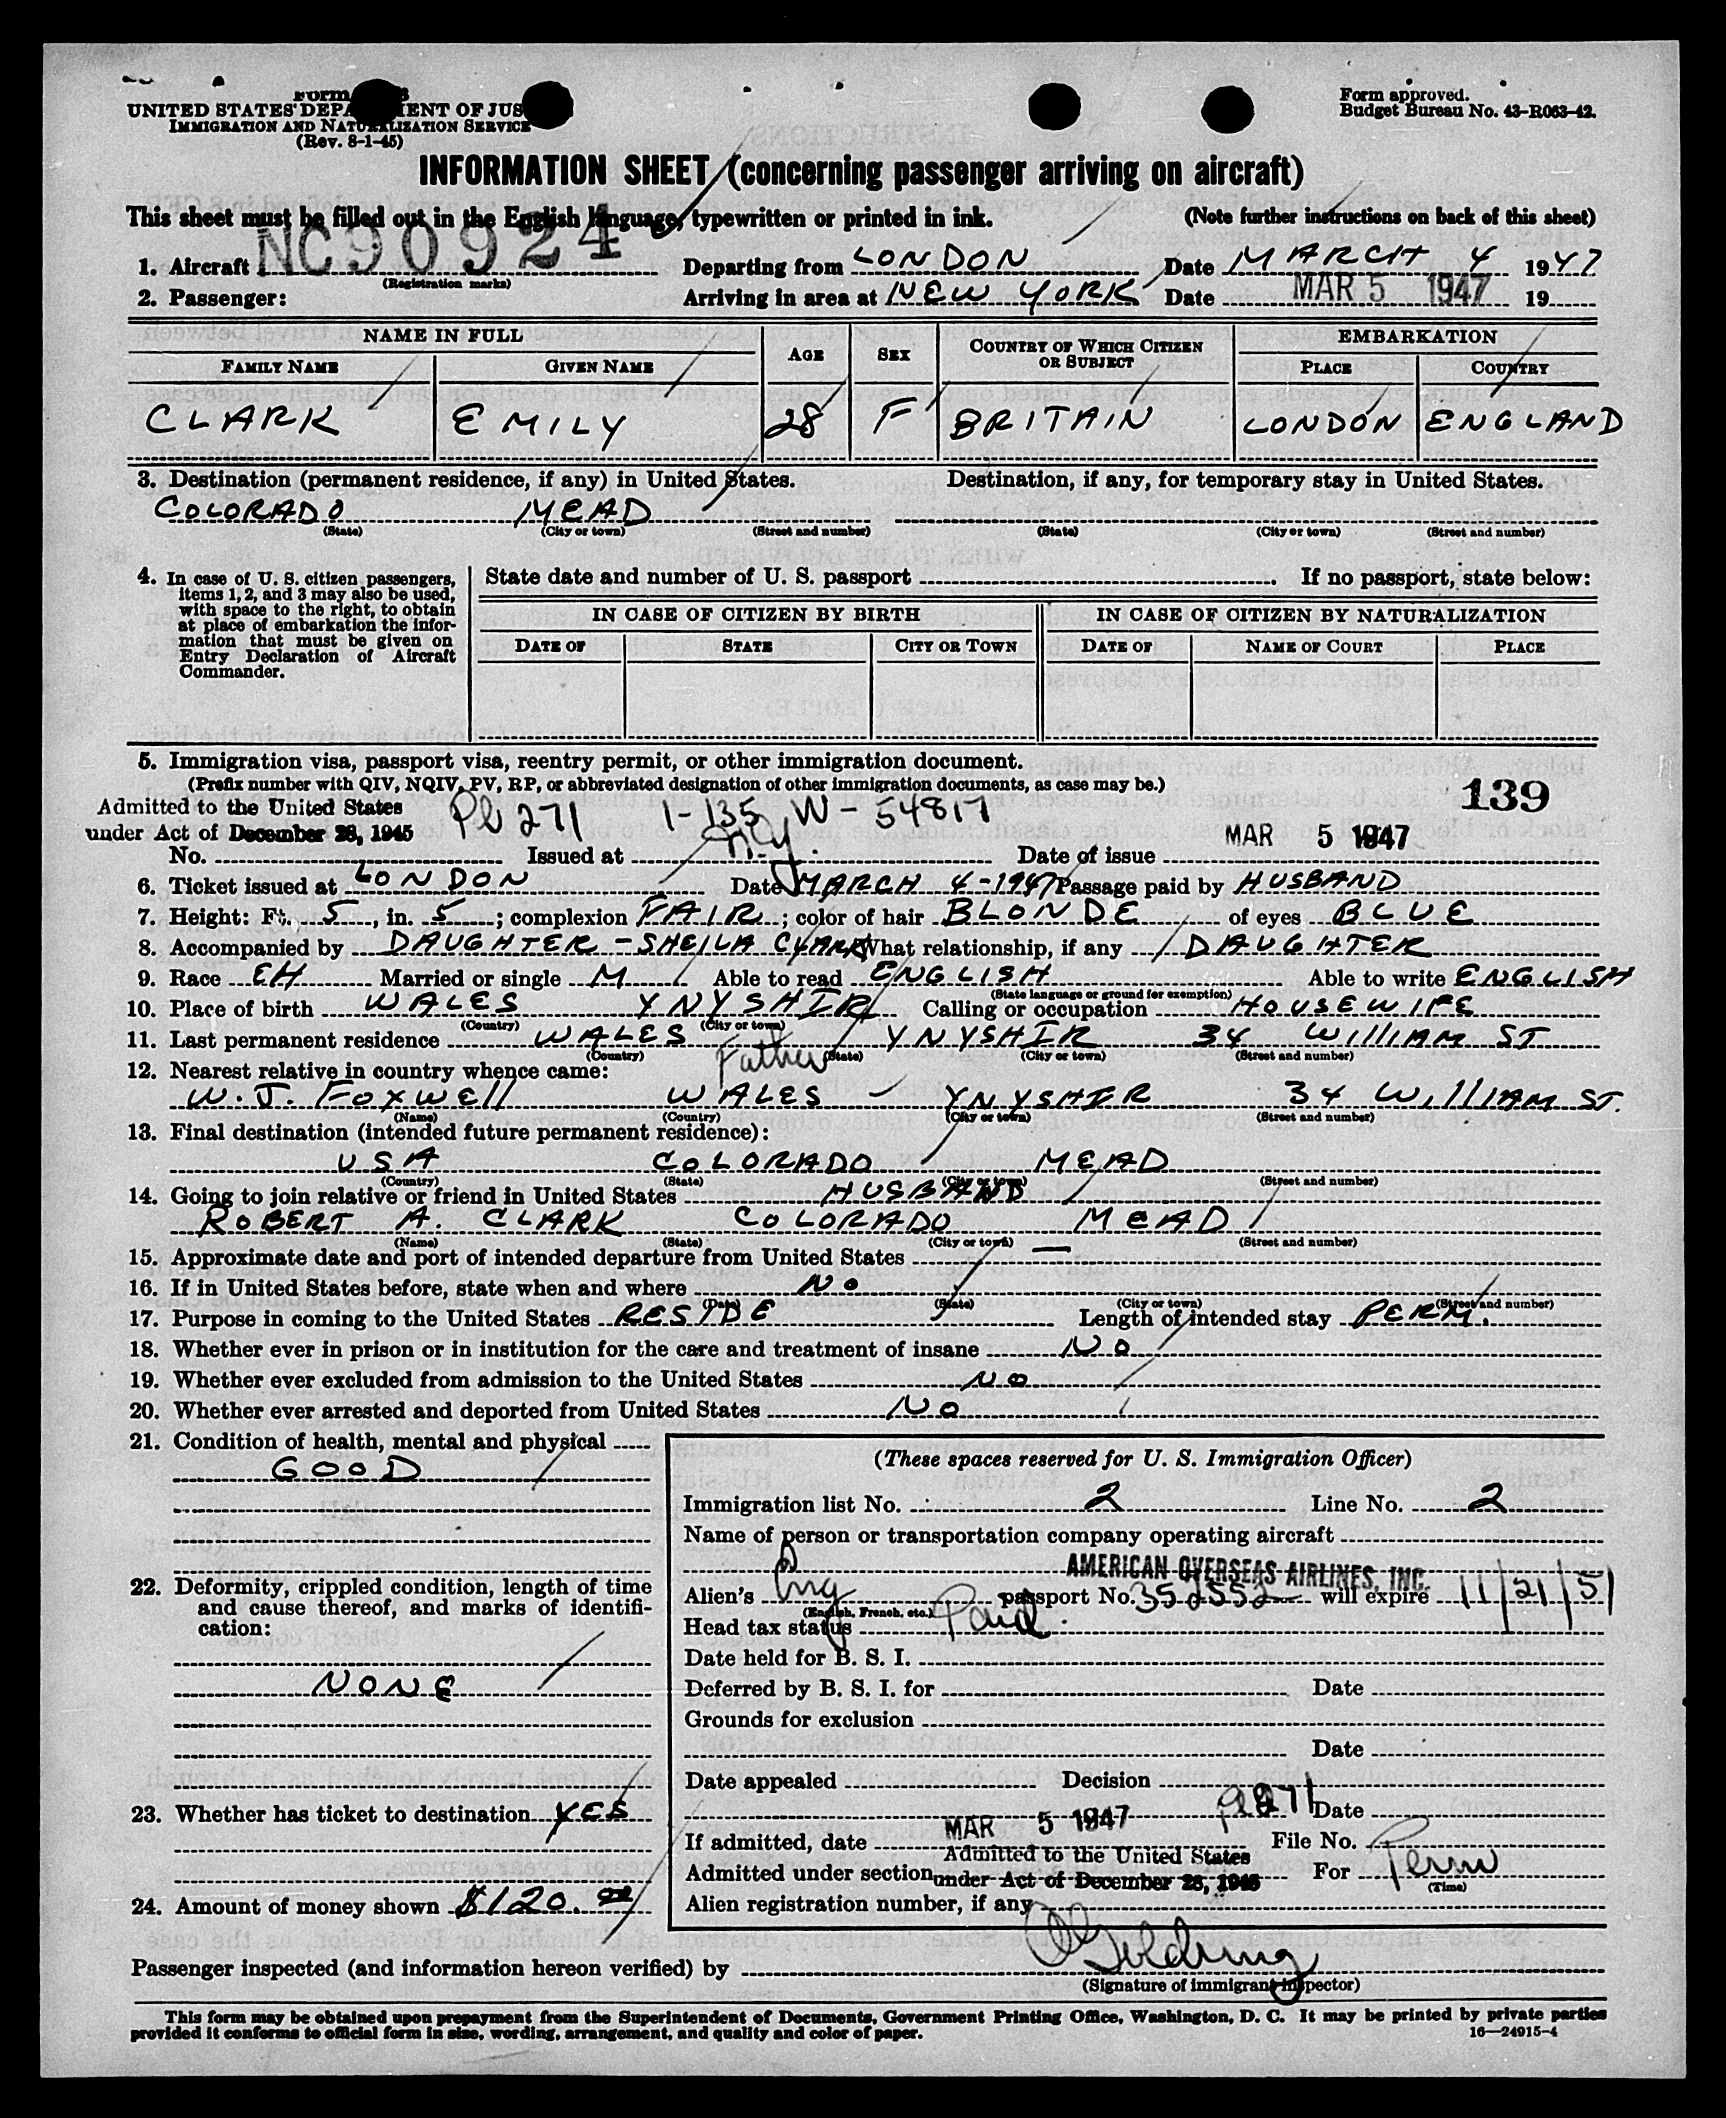 UNITED STATES DEPARTMENT OF JUS
IMMIGRATION AND NATURALIZATION SERVICE
(Rev. 8-1-45)
Form approved.
Budget Bureau No. 43-R063-42.
INFORMATION SHEET (concerning passenger arriving on aircraft)
This sheet must be filled out in the English language, typewritten or printed in ink. (Note further instructions on back of this sheet)
1. Aircraft NC90924 Departing from LONDON Date MARCH 4 1947
(Registration marks)
2. Passenger: Arriving in area at NEW YORK Date MAR 5 1947 19
NAME IN FULL AGE SEX COUNTRY OF WHICH CITIZEN OR SUBJECT EMBARKATION
FAMILY NAME GIVEN NAME PLACE COUNTRY
CLARK EMILY 28 F BRITAIN LONDON ENGLAND
3. Destination (permanent residence, if any) in United States. Destination, if any, for temporary stay in United States.
COLORADO MEAD
(State) (City or town) (Street and number) (State) (City or town) (Street and number)
4. In case of U. S. citizen passengers,
items 1, 2, and 3 may also be used,
with space to the right, to obtain
at place of embarkation the infor-
mation that must be given on
Entry Declaration of Aircraft
Commander.
State date and number of U. S. passport . If no passport, state below:
IN CASE OF CITIZEN BY BIRTH IN CASE OF CITIZEN BY NATURALIZATION
DATE OF STATE CITY OR TOWN DATE OF NAME OF COURT PLACE
5. Immigration visa, passport visa, reentry permit, or other immigration document.
(Prefix number with QIV, NQIV, PV, RP, or abbreviated designation of other immigration documents, as case may be.)
139
Admitted to the United States
under Act of December 28, 1945
Pl 271 1-135 W-54817
N.Y. MAR 5 1947
No. Issued at Date of issue
6. Ticket issued at LONDON Date MARCH 4-1947 Passage paid by HUSBAND
7. Height: Ft. 5, in. 5; complexion FAIR; color of hair BLONDE of eyes BLUE
8. Accompanied by DAUGHTER - SHEILA CLARK What relationship, if any DAUGHTER
9. Race EH Married or single M Able to read ENGLISH Able to write ENGLISH
(State language or ground for exemption)
10. Place of birth WALES YNYSHIR Calling or occupation HOUSEWIFE
(Country) (City or town)
11. Last permanent residence WALES YNYSHIR 34 WILLIAM ST
(Country) (State) (City or town) (Street and number)
12. Nearest relative in country whence came: Father
W. J. FOXWELL WALES - YNYSHIR 34 WILLIAM ST.
(Name) (Country) (City or town) (Street and number)
13. Final destination (intended future permanent residence):
USA COLORADO MEAD
(Country) (State) (City or town) (Street and number)
14. Going to join relative or friend in United States HUSBAND
ROBERT A. CLARK COLORADO MEAD
(Name) (State) (City or town) (Street and number)
15. Approximate date and port of intended departure from United States —
16. If in United States before, state when and where NO
(Date) (State) (City or town) (Street and number)
17. Purpose in coming to the United States RESIDE Length of intended stay PERM.
18. Whether ever in prison or in institution for the care and treatment of insane NO
19. Whether ever excluded from admission to the United States NO
20. Whether ever arrested and deported from United States NO
21. Condition of health, mental and physical
GOOD
22. Deformity, crippled condition, length of time
and cause thereof, and marks of identifi-
cation:
NONE
23. Whether has ticket to destination YES
24. Amount of money shown $120 00
(These spaces reserved for U. S. Immigration Officer)
Immigration list No. 2 Line No. 2
Name of person or transportation company operating aircraft
AMERICAN OVERSEAS AIRLINES, INC.
Alien's Eng passport No. 352552 will expire 11/21/51
(English, French, etc.)
Head tax status Paid.
Date held for B. S. I.
Deferred by B. S. I. for Date
Grounds for exclusion
Date
Date appealed Decision
Pl 271 Date
If admitted, date MAR 5 1947 File No.
Admitted to the United States
Admitted under section under Act of December 28, 1945 For Perm
(Time)
Alien registration number, if any
Passenger inspected (and information hereon verified) by Golding
(Signature of immigrant inspector)
This form may be obtained upon prepayment from the Superintendent of Documents, Government Printing Office, Washington, D. C. It may be printed by private parties
provided it conforms to official form in size, wording, arrangement, and quality and color of paper. 16—24915-4